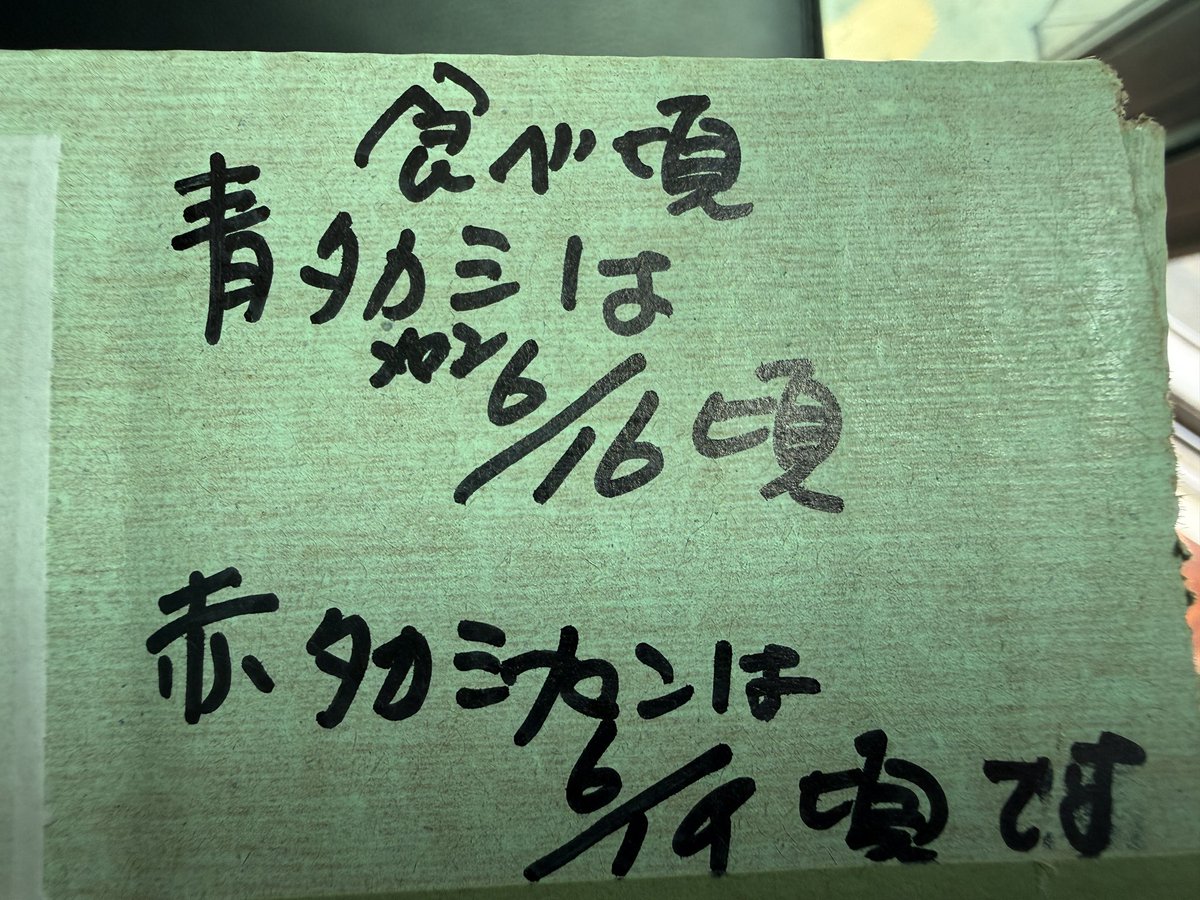 食べ頃
青タカミは
メロン
6/16頃
赤タカミメロンは
6/19頃です